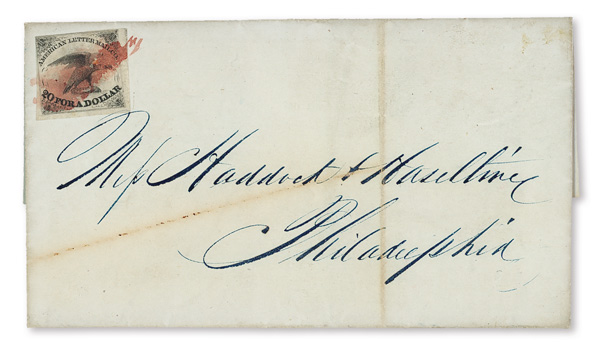 AMERICAN LETTER MAIL CO.
20 FOR A DOLLAR
Mess Haddock & Haseltine
Philadelphia